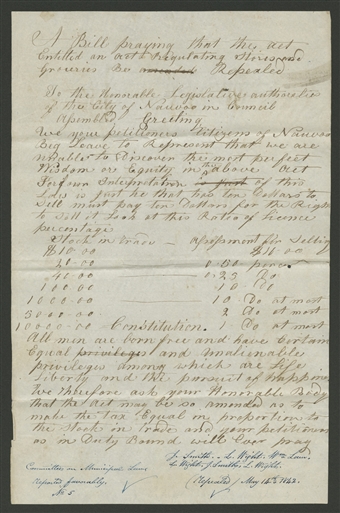 A Bill praying that the act
Entitled an act Regulating Stores and
Groceries Be amended Repealed
To the Honorable Legislative authorities
of the City of Nauvoo in Council
Assembled Greeting
We your petitioners Citizens of Nauvoo
Beg Leave to Represent that we are
unable to Discover the most perfect
Wisdom or Equity in the above act
for Interpretation is part of this
is that he that has ten Dollars to
Sell must pay ten Dollars for the Right
to Sell it Look at this Ratio of Licence
percentage
Stock in trade — for Selling
$10.00 $10.00
0.50 per
40.00 0.25 Do
100.00 10 Do
1000.00 10 Do at most
3000.00 2 Do at most
10000.00 Constitution. 1 Do at most
All men are born free and have Certain
Equal privileges and unalienable
privileges among which are Life
Liberty and the pursuit of happiness
We therefore ask your Honorable Body
that the Act may be so amended as to
make the tax Equal in proportion to
the Stock in trade and your petitioners
as in Duty Bound will Ever pray
J. Smith. L. Wight. Wm Law.
L. Wight. J. Smith. L. Wight.
Committee on Municipal Laws
Reported favorably. (Repealed) May 14th 1842.
No 5